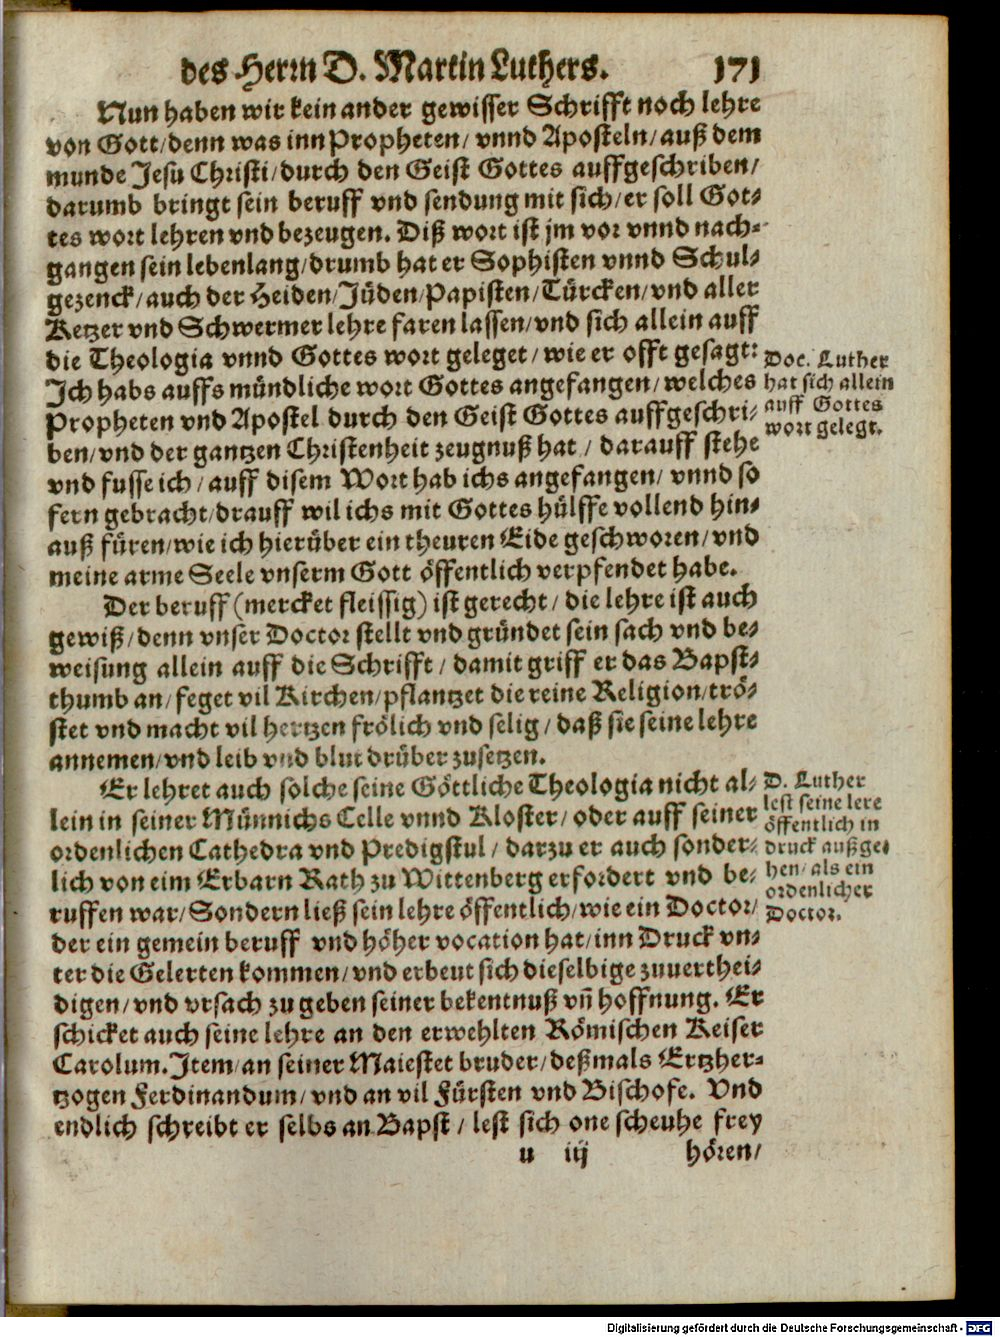 des Herrn D. Martin Luthers. 171
Nun haben wir kein ander gewisser Schrifft noch lehre
von Gott/denn was inn Propheten/ vnnd Aposteln/auß dem
munde Jesu Christi/durch den Geist Gottes auffgeschriben/
darumb bringt sein beruff vnd sendung mit sich/er soll Got-
tes wort lehren vnd bezeugen. Diß wort ist jm vor vnnd nach-
gangen sein lebenlang/drumb hat er Sophisten vnnd Schul-
gezenck/auch der Heiden/Jüden/Papisten/Türcken/vnd aller
Ketzer vnd Schwermer lehre faren lassen/vnd sich allein auff
die Theologia vnnd Gottes wort geleget/wie er offt gesagt:
Ich habs auffs mündliche wort Gottes angefangen/welches
Propheten vnd Apostel durch den Geist Gottes auffgeschri-
ben/vnd der gantzen Christenheit zeugnuß hat / darauff stehe
vnd fusse ich / auff disem Wort hab ichs angefangen/ vnnd so
fern gebracht/drauff wil ichs mit Gottes hülffe vollend hin-
auß füren/wie ich hierüber ein theuren Eide geschworen/vnd
meine arme Seele vnserm Gott öffentlich verpfendet habe.
Doc. Luther
hat sich allein
auff Gottes
wort gelegt.
Der beruff (mercket fleissig) ist gerecht / die lehre ist auch
gewiß/denn vnser Doctor stellt vnd gründet sein sach vnd be-
weisung allein auff die Schrifft / damit griff er das Bapst-
thumb an/feget vil Kirchen/pflantzet die reine Religion/trö-
stet vnd macht vil hertzen frölich vnd selig / daß sie seine lehre
annemen/vnd leib vnd blut drüber zusetzen.
Er lehret auch solche seine Göttliche Theologia nicht al-
lein in seiner Münnichs Celle vnnd Kloster/ oder auff seiner
ordenlichen Cathedra vnd Predigstul / darzu er auch sonder-
lich von eim Erbarn Rath zu Wittenberg erfordert vnd be-
ruffen war/Sondern ließ sein lehre öffentlich/wie ein Doctor/
der ein gemein beruff vnd höher vocation hat/inn Druck vn-
ter die Gelerten kommen/vnd erbeut sich dieselbige zuuerthei-
digen/vnd vrsach zu geben seiner bekentnuß vñ hoffnung. Er
schicket auch seine lehre an den erwehlten Römischen Keiser
Carolum. Item/an seiner Maiestet bruder/deßmals Ertzher-
tzogen Ferdinandum/vnd an vil Fürsten vnd Bischofe. Vnd
endlich schreibt er selbs an Bapst / lest sich one scheuhe frey
D. Luther
lest seine lere
öffentlich in
druck außge-
hen/als ein
ordenlicher
Doctor.
u iij hören/
Digitalisierung gefördert durch die Deutsche Forschungsgemeinschaft - DFG